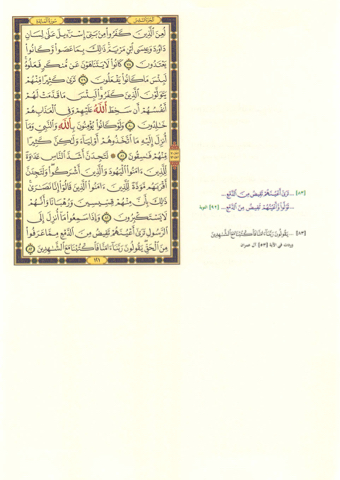 لُعِنَ الَّذِينَ كَفَرُوا مِنْ بَنِي إِسْرَائِيلَ عَلَىٰ لِسَانِ
دَاوُودَ وَعِيسَى ابْنِ مَرْيَمَ ذَٰلِكَ بِمَا عَصَوا وَّكَانُوا
يَعْتَدُونَ ۝ كَانُوا لَا يَتَنَاهَوْنَ عَنْ مُنكَرٍ فَعَلُوهُ
لَبِئْسَ مَا كَانُوا يَفْعَلُونَ ۝ تَرَىٰ كَثِيرًا مِنْهُمْ
يَتَوَلَّوْنَ الَّذِينَ كَفَرُوا لَبِئْسَ مَا قَدَّمَتْ لَهُمْ
أَنفُسُهُمْ أَنْ سَخِطَ اللَّهُ عَلَيْهِمْ وَفِي الْعَذَابِ هُمْ
خَالِدُونَ ۝ وَلَوْ كَانُوا يُؤْمِنُونَ بِاللَّهِ وَالنَّبِيِّ وَمَا
أُنزِلَ إِلَيْهِ مَا اتَّخَذُوهُمْ أَوْلِيَاءَ وَلَٰكِنَّ كَثِيرًا
مِنْهُمْ فَاسِقُونَ ۝ لَتَجِدَنَّ أَشَدَّ النَّاسِ عَدَاوَةً
لِلَّذِينَ آمَنُوا الْيَهُودَ وَالَّذِينَ أَشْرَكُوا وَلَتَجِدَنَّ
أَقْرَبَهُمْ مَوَدَّةً لِلَّذِينَ آمَنُوا الَّذِينَ قَالُوا إِنَّا نَصَارَىٰ
ذَٰلِكَ بِأَنَّ مِنْهُمْ قِسِّيسِينَ وَرُهْبَانًا وَأَنَّهُمْ
لَا يَسْتَكْبِرُونَ ۝ وَإِذَا سَمِعُوا مَا أُنزِلَ إِلَى
الرَّسُولِ تَرَىٰ أَعْيُنَهُمْ تَفِيضُ مِنَ الدَّمْعِ مِمَّا عَرَفُوا
مِنَ الْحَقِّ يَقُولُونَ رَبَّنَا آمَنَّا فَاكْتُبْنَا مَعَ الشَّاهِدِينَ ۝
١٢١
[٨٣] ... تَرَىٰ أَعْيُنَهُمْ تَفِيضُ مِنَ الدَّمْعِ ...
... تَوَلَّوا وَّأَعْيُنُهُمْ تَفِيضُ مِنَ الدَّمْعِ ... [٩٢] التوبة
[٨٣] ... يَقُولُونَ رَبَّنَا آمَنَّا فَاكْتُبْنَا مَعَ الشَّاهِدِينَ
وردت في الآية [٥٣] آل عمران